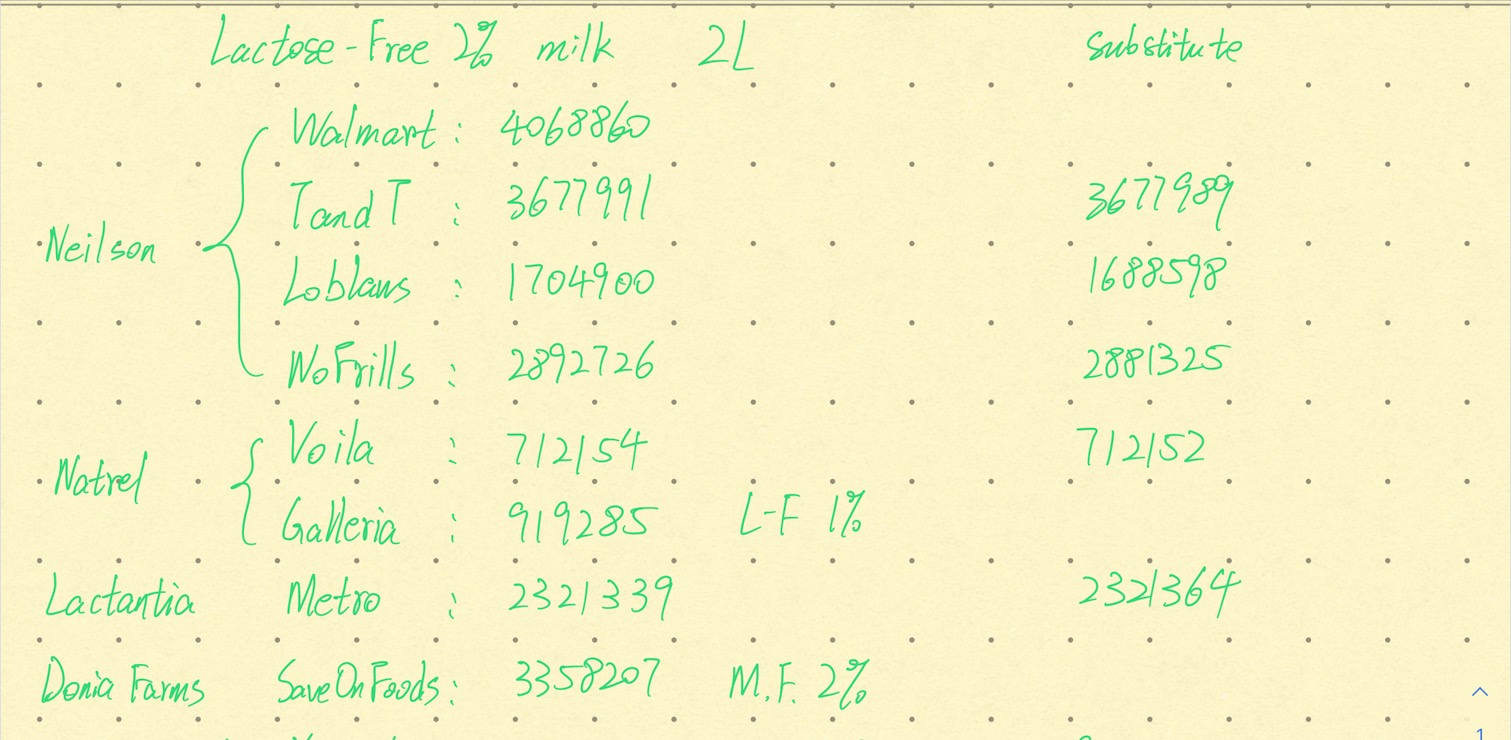 Lactose-Free 2% milk 2L Substitute
Walmart : 4068860
TandT : 3677991 3677989
Neilson
Loblaws : 1704900 1688598
NoFrills : 2892726 2881325
Voila : 712154 712152
Natrel
Galleria : 919285 L-F 1%
Lactantia Metro : 2321339 2321364
Donia Farms SaveOnFoods: 3358207 M.F. 2%
1